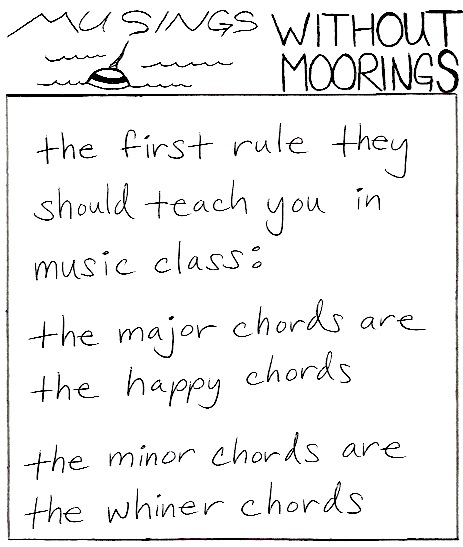 MUSINGS WITHOUT
MOORINGS
the first rule they
should teach you in
music class:
the major chords are
the happy chords
the minor chords are
the whiner chords